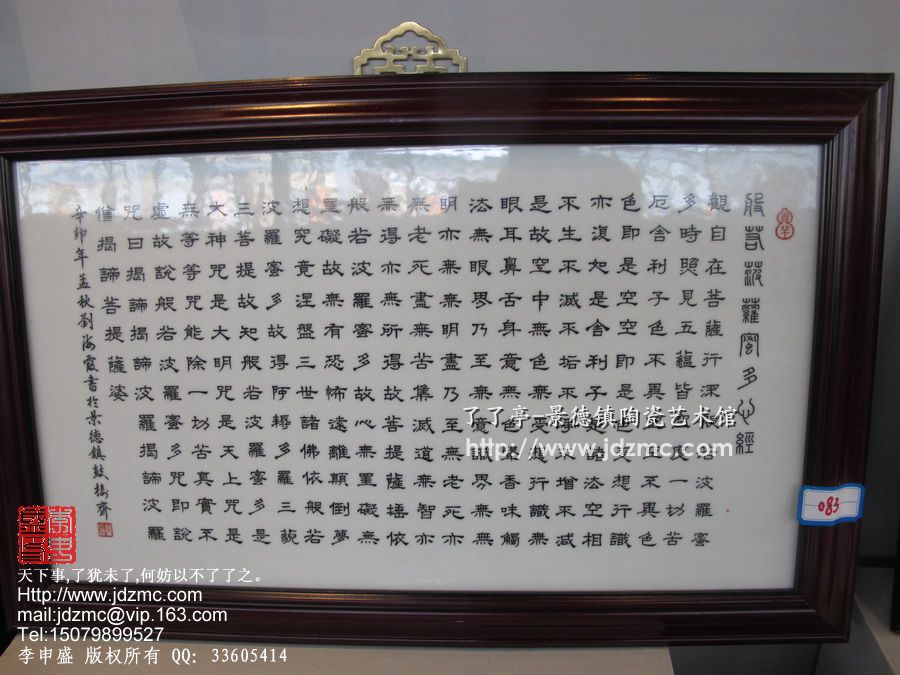 般若菠蘿密多心經
觀自在菩薩行深般若波羅蜜
多時照見五蘊皆空度一切苦
厄舍利子色不異空空不異色
色即是空空即是色受想行識
亦復如是舍利子是諸法空相
不生不滅不垢不淨不增不減
是故空中無色無受想行識無
眼耳鼻舌身意無色聲香味觸
法無眼界乃至無意識界無無
明亦無無明盡乃至無老死亦
無老死盡無苦集滅道無智亦
無得亦無所得故菩提薩埵依
般若波羅蜜多故心無罣礙無
罣礙故無有恐怖遠離顛倒夢
想究竟涅盤三世諸佛依般若
波羅蜜多故得阿耨多羅三藐
三菩提故知般若波羅蜜多是
大神咒是大明咒是天上咒是
無等等咒能除一切苦真實不
虛故說般若波羅蜜多咒即說
咒曰揭諦揭諦波羅揭諦波羅
僧揭諦菩提薩婆
辛卯年孟秋劉海霞書於景德鎮鼓樓齋
了了亭-景德镇陶瓷艺术馆
http://www.jdzmc.com
083
天下事,了犹未了,何妨以不了了之。
Http://www.jdzmc.com
mail:jdzmc@vip.163.com
Tel:15079899527
李申盛 版权所有 QQ: 33605414